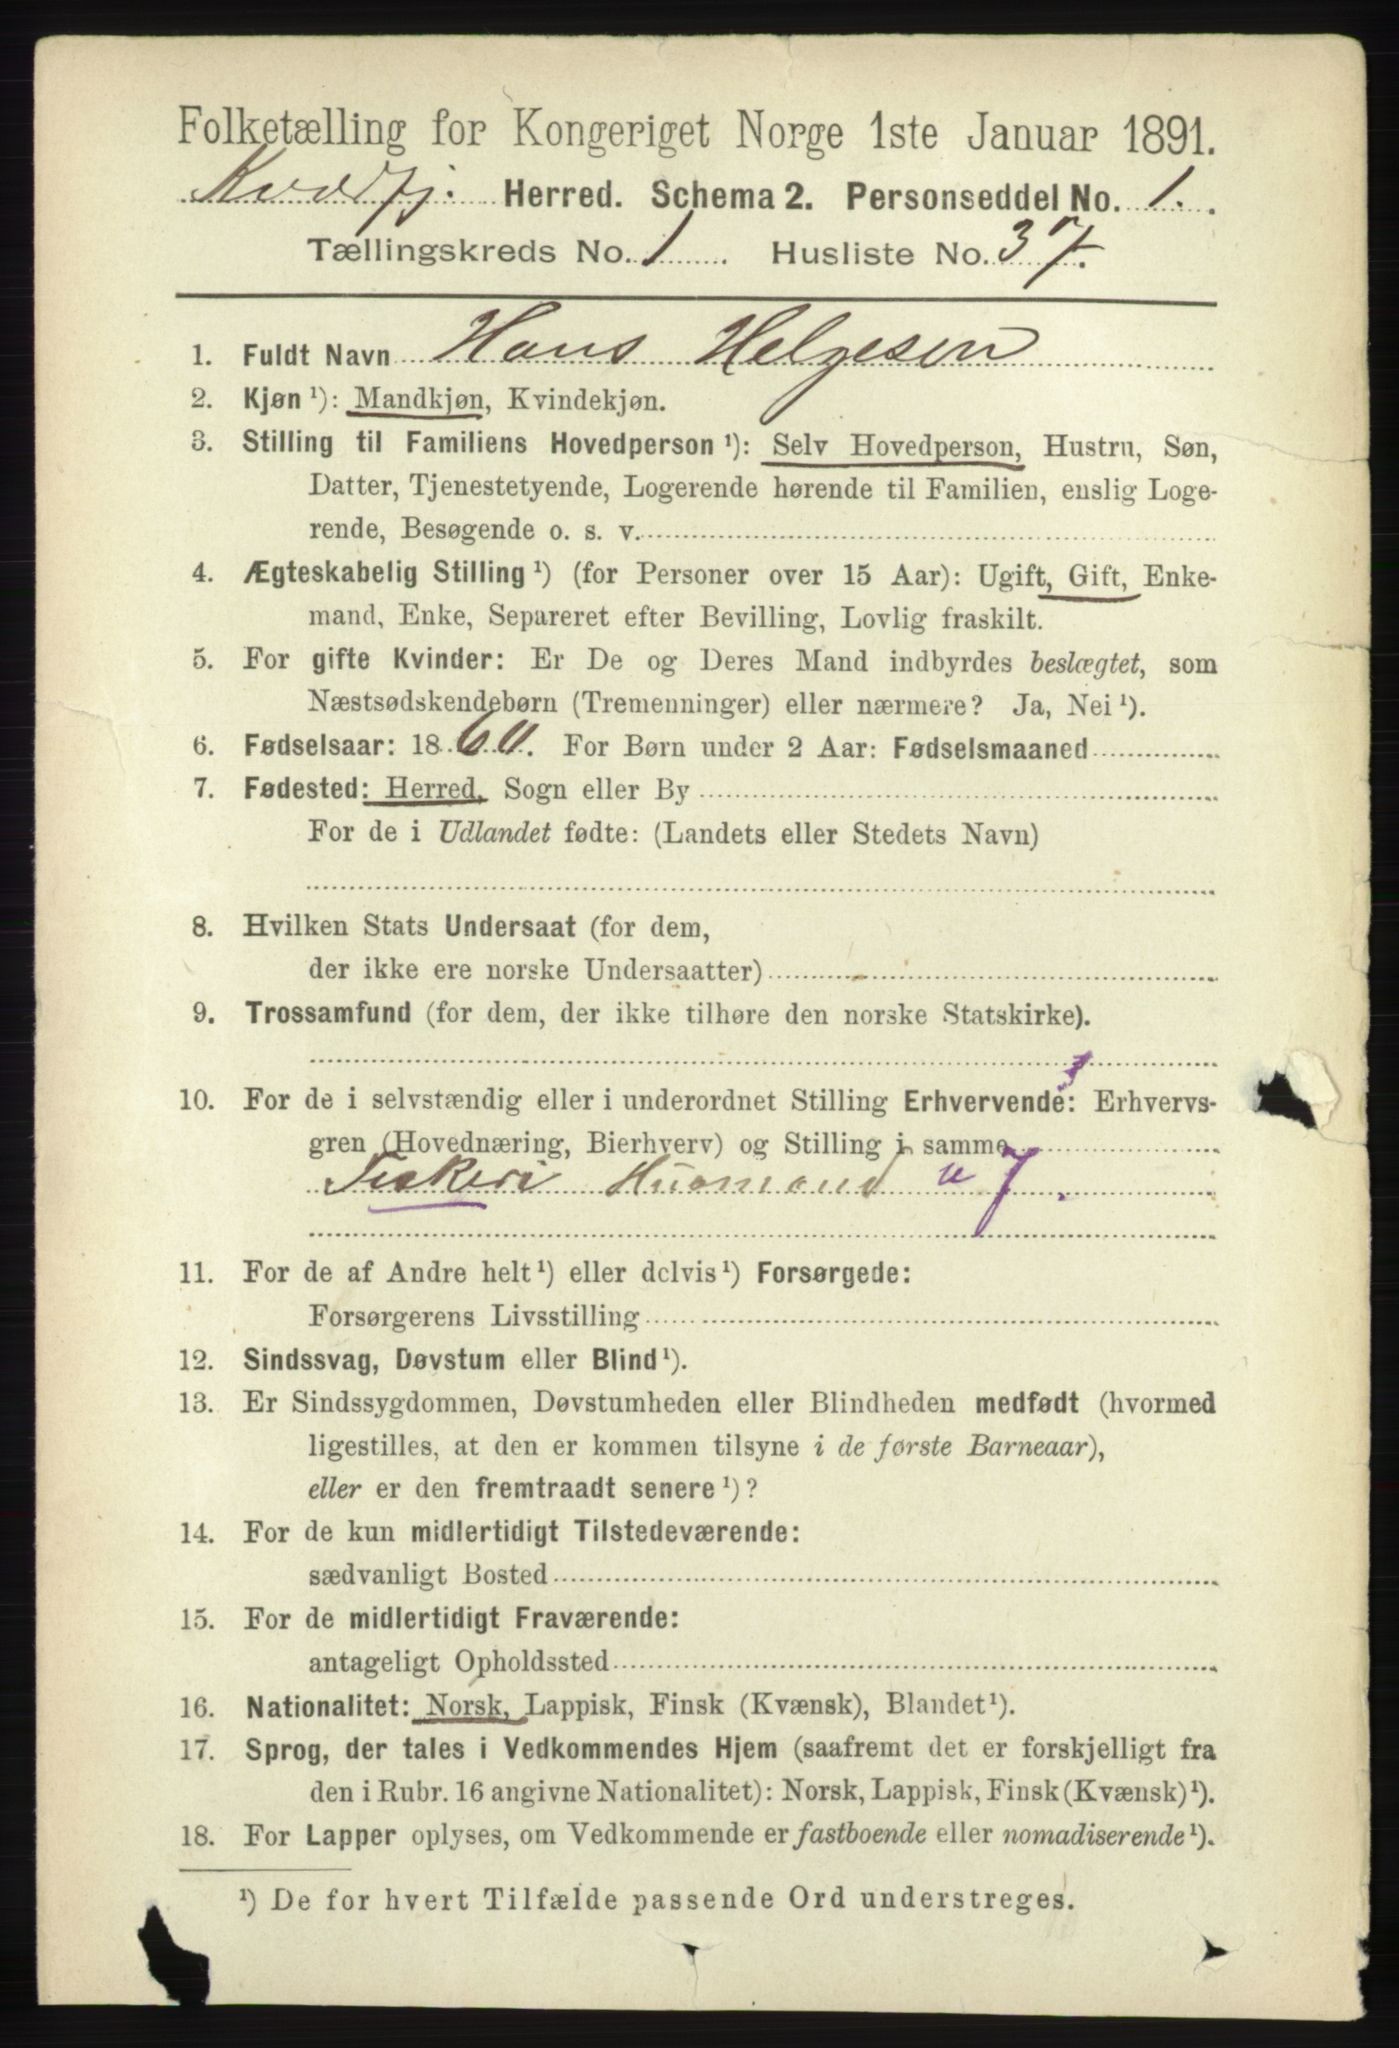 Folketælling for Kongeriget Norge 1ste Januar 1891.
Kvædfj. Herred. Schema 2. Personseddel No. 1.
Tællingskreds No. 1 Husliste No. 37.
1. Fuldt Navn Hans Helgesen
2. Kjøn ¹): Mandkjøn, Kvindekjøn.
3. Stilling til Familiens Hovedperson ¹): Selv Hovedperson, Hustru, Søn,
Datter, Tjenestetyende, Logerende hørende til Familien, enslig Loge-
rende, Besøgende o. s. v.
4. Ægteskabelig Stilling ¹) (for Personer over 15 Aar): Ugift, Gift, Enke-
mand, Enke, Separeret efter Bevilling, Lovlig fraskilt.
5. For gifte Kvinder: Er De og Deres Mand indbyrdes beslægtet, som
Næstsødskendebørn (Tremenninger) eller nærmere? Ja, Nei ¹).
6. Fødselsaar: 1860. For Børn under 2 Aar: Fødselsmaaned
7. Fødested: Herred, Sogn eller By
For de i Udlandet fødte: (Landets eller Stedets Navn)
8. Hvilken Stats Undersaat (for dem,
der ikke ere norske Undersaatter)
9. Trossamfund (for dem, der ikke tilhøre den norske Statskirke).
10. For de i selvstændig eller i underordnet Stilling Erhvervende: Erhvervs-
gren (Hovednæring, Bierhverv) og Stilling i samme
Fiskeri Husmand u 7.
11. For de af Andre helt ¹) eller delvis ¹) Forsørgede:
Forsørgerens Livsstilling
12. Sindssvag, Døvstum eller Blind ¹).
13. Er Sindssygdommen, Døvstumheden eller Blindheden medfødt (hvormed
ligestilles, at den er kommen tilsyne i de første Barneaar),
eller er den fremtraadt senere ¹)?
14. For de kun midlertidigt Tilstedeværende:
sædvanligt Bosted
15. For de midlertidigt Fraværende:
antageligt Opholdssted
16. Nationalitet: Norsk, Lappisk, Finsk (Kvænsk), Blandet ¹).
17. Sprog, der tales i Vedkommendes Hjem (saafremt det er forskjelligt fra
den i Rubr. 16 angivne Nationalitet): Norsk, Lappisk, Finsk (Kvænsk) ¹).
18. For Lapper oplyses, om Vedkommende er fastboende eller nomadiserende ¹).
¹) De for hvert Tilfælde passende Ord understreges.